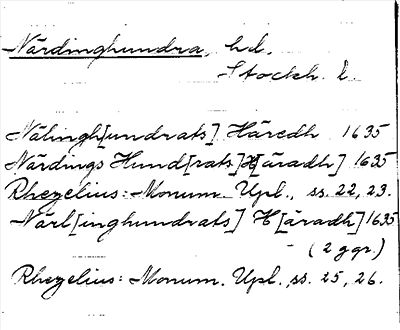 Närdinghundra, hd.
Stockh. l.
Nälingh[undrats] Häredh 1635
Närdings Hund[rats] H[äradh] 1635
Rhezelius: Monum. Upl., ss. 22, 23.
Närl[inghundrats] H[äradh] 1635
(2 ggr.)
Rhezelius: Monum. Upl., ss. 25, 26.